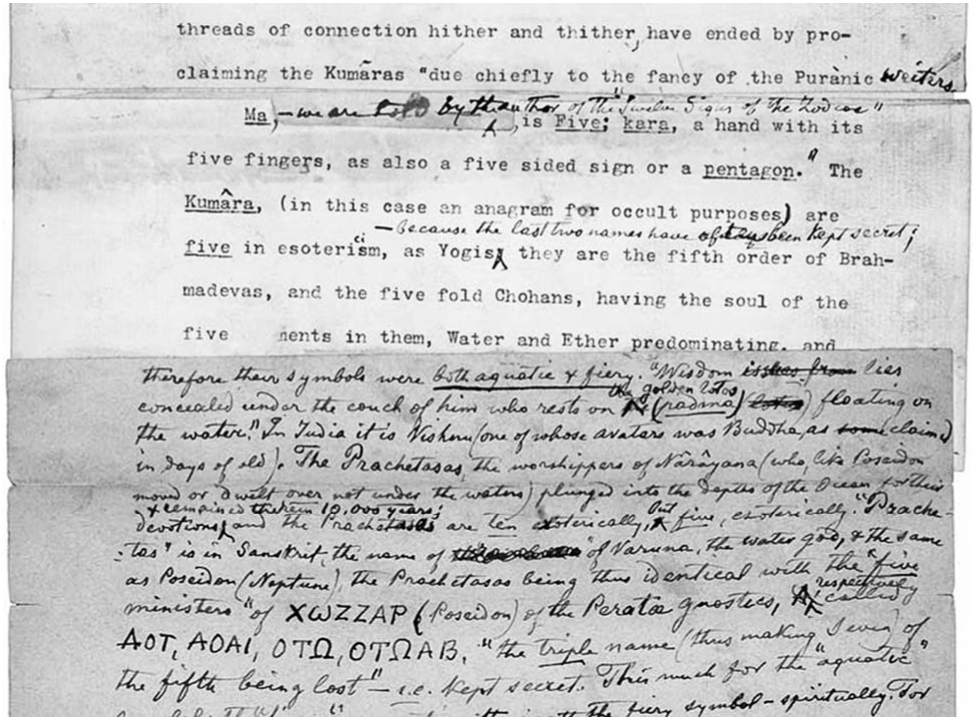 threads of connection hither and thither, have ended by pro-
claiming the Kumāras "due chiefly to the fancy of the Purànic writers
Ma, – we are told by the author of the "Twelve Signs of the Zodiac"
, is Five; kara, a hand with its
five fingers, as also a five sided sign or a pentagon." The
Kumâra, (in this case an anagram for occult purposes) are
– because the last two names have been kept secret;
five in esotericism, as Yogis they are the fifth order of Brah-
madevas, and the five fold Chohans, having the soul of the
five ments in them, Water and Ether predominating, and
therefore their symbols were both aquatic & fiery. "Wisdom lies
the golden lotos
concealed under the couch of him who rests on (padma) floating on
the water." In India it is Vishnu (one of whose avatars was Buddha, as claimed
in days of old). The Prachetasas, the worshippers of Nârâyana (who, like Poseidon
moved or dwelt over not under the waters) plunged into the depths of the Ocean for their
& remained therein 10,000 years;
devotions, and the Prachetasas are ten exoterically, but five, esoterically. "Prache-
tas" is in Sanskrit, the name of Varuna, the water god, & the same
as Poseidon (Neptune), the Prachetasas being thus identical with the "five
respectively
ministers" of ΧΩΖΖΑΡ (Poseidon) of the Peratæ gnostics, called
ΑΟΤ, ΑΟΑΙ, ΟΤΩ, ΟΤΩΑΒ, "the triple name (thus making seven) of
the fifth being lost" – i.e. kept secret. This much for the "aquatic"
the fiery symbol – spiritually. For